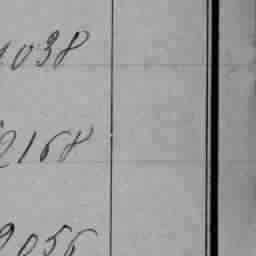 1038
2168
2056